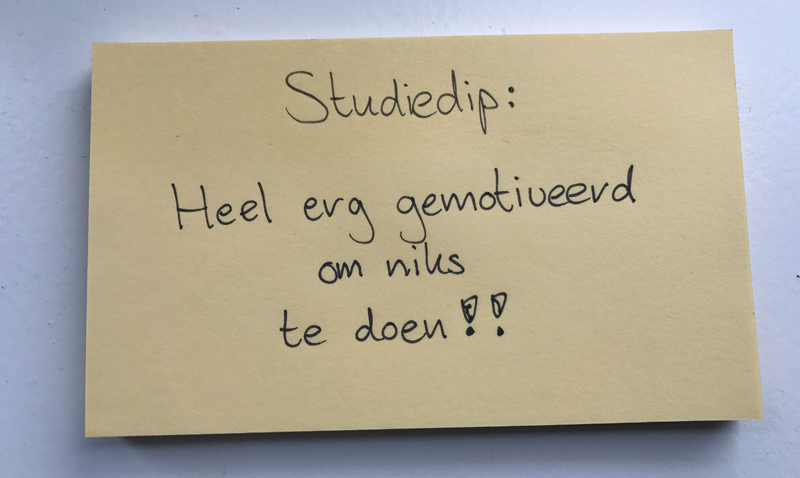 Studiedip:
Heel erg gemotiveerd
om niks
te doen!!